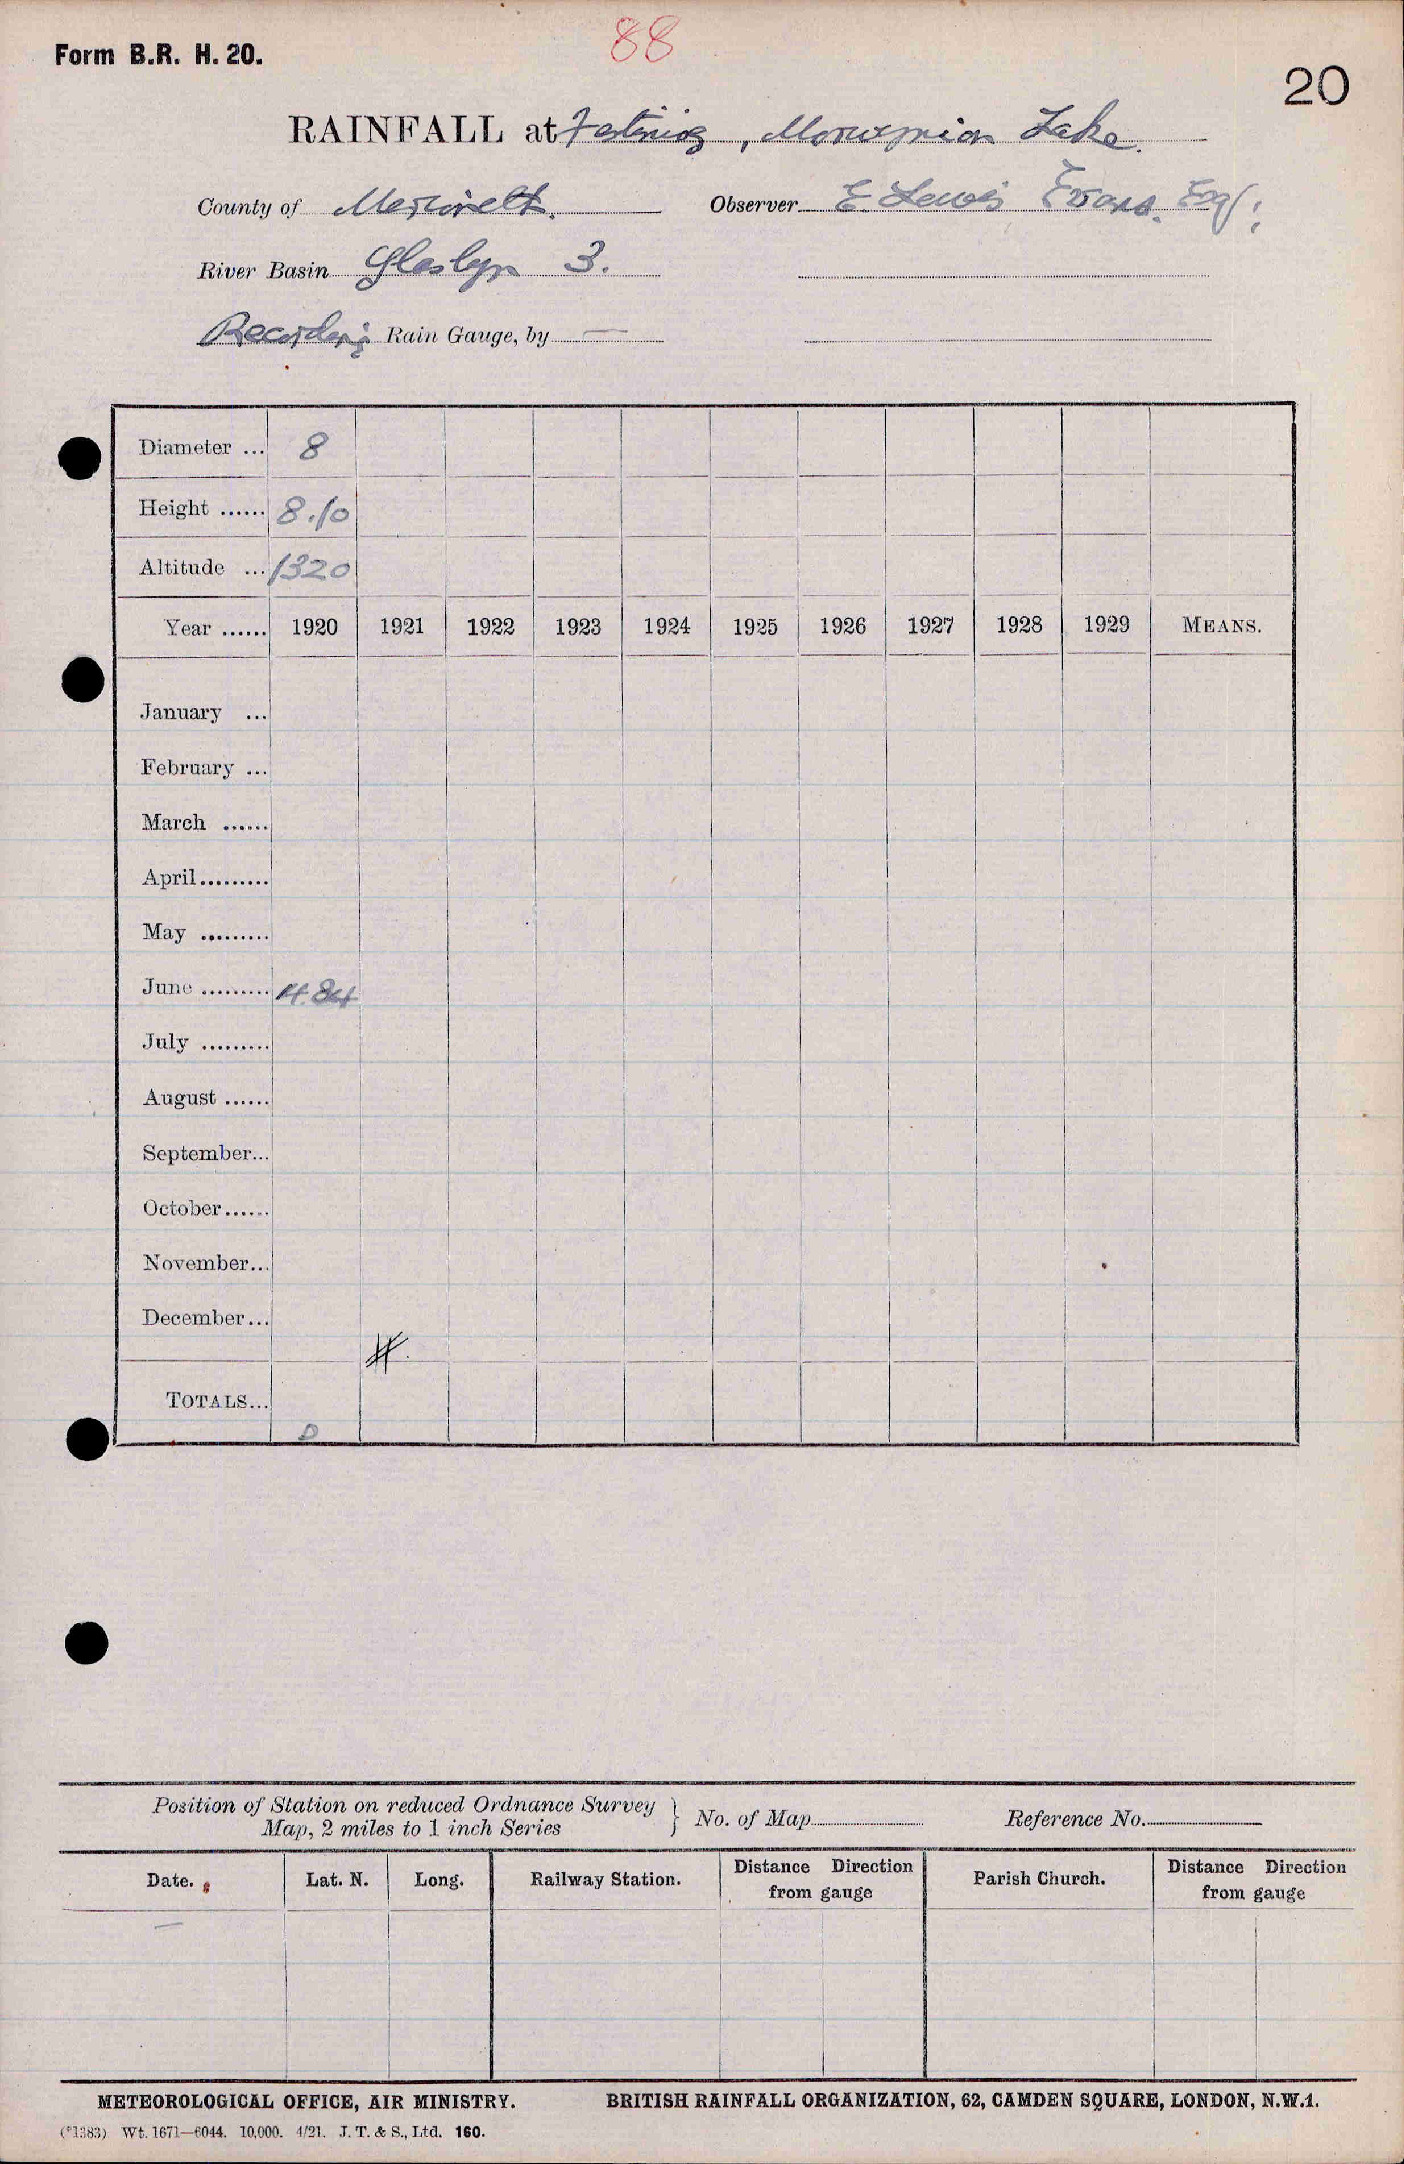 88
Form B.R. H. 20.
20
RAINFALL at Festiniog, Morwynion Lake.
County of Merioneth. Observer E Lewis Evans. Esq;
River Basin Glaslyn 3.
Recording Rain Gauge, by —
Diameter ... 8
Height ...... 8.10
Altitude ... 1320
Year ...... 1920 1921 1922 1923 1924 1925 1926 1927 1928 1929 MEANS.
January ...
February ...
March ......
April.........
May .........
June ......... 4.84
July .........
August ......
September...
October......
November...
December...
TOTALS...
D
Position of Station on reduced Ordnance Survey
Map, 2 miles to 1 inch Series } No. of Map Reference No.
Date. Lat. N. Long. Railway Station. Distance Direction from gauge Parish Church. Distance Direction from gauge
—
METEOROLOGICAL OFFICE, AIR MINISTRY. BRITISH RAINFALL ORGANIZATION, 62, CAMDEN SQUARE, LONDON, N.W.1.
(*1383) Wt. 1671—6044. 10,000. 4/21. J. T. & S., Ltd. 160.